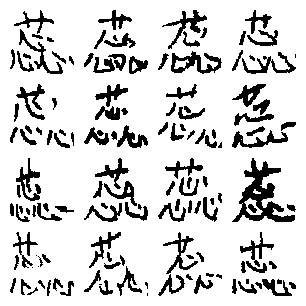 蕊蕊蕊蕊
蕊蕊蕊蕊
蕊蕊蕊蕊
蕊蕊蕊蕊